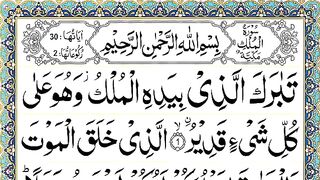 اٰیَاتُهَا: 30
رُکُوْعَاتُهَا: 2
سُوْرَةُ
الْمُلْکِ
مَکِّیَّةٌ
بِسْمِ اللّٰهِ الرَّحْمٰنِ الرَّحِیْمِ
تَبٰرَكَ الَّذِیْ بِیَدِهِ الْمُلْكُ وَهُوَ عَلٰی
كُلِّ شَیْءٍ قَدِیْرُ ۙ ۝۱ الَّذِیْ خَلَقَ الْمَوْتَ